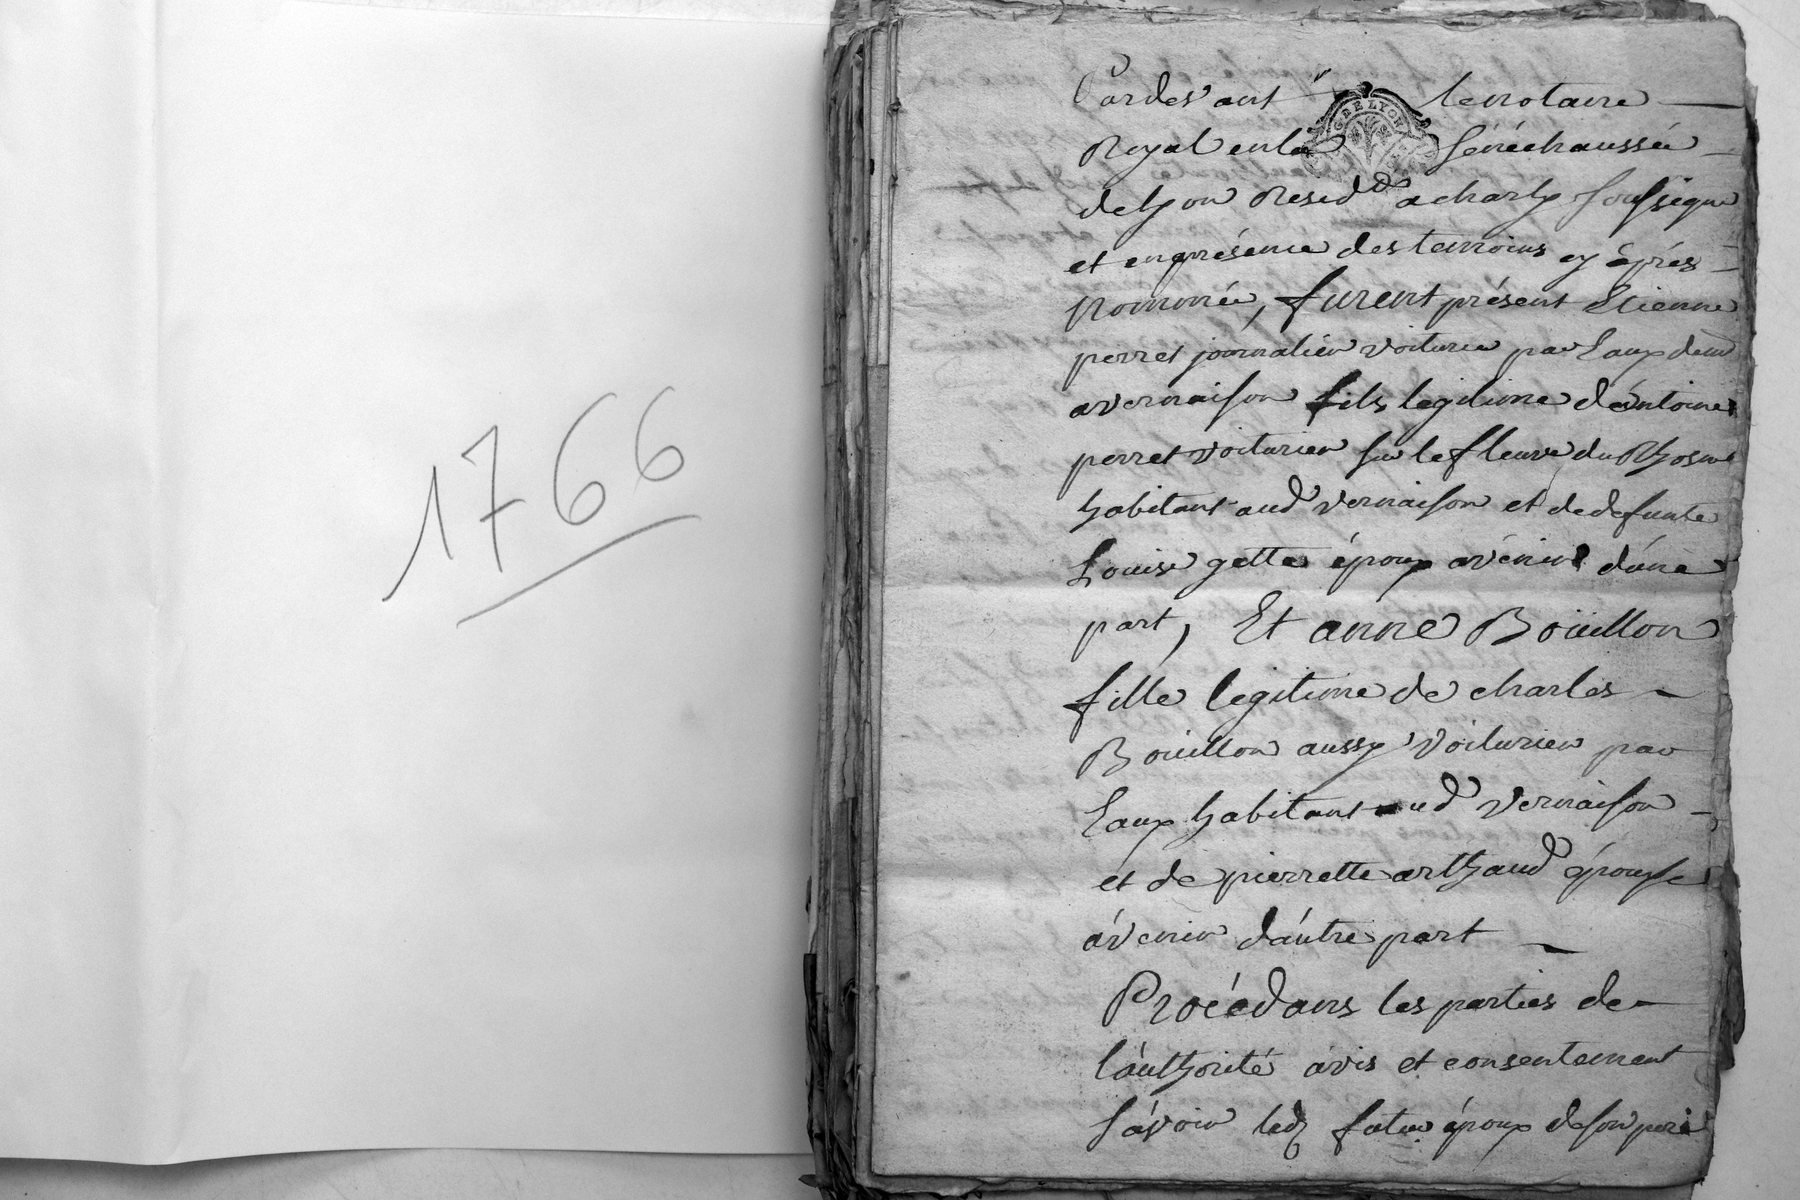 1766
G DE LYON
Pardevant le notaire
Royal en la sénéchaussée
de Lyon Resid.d a charly soussigné
et en présence des temoins cy áprés
nommée, furent présent Etienne
perret journalier voiturier par Eaux dem.t
a vernaison fils legitime d'éntoine
perret voiturier sur le fleuve du Rhosne
habitant aud vernaison et de defunte
Louise gette époux avénir d'úne
part, Et anne Boüillon
fille legitime de charles
Boüillon aussy voiturier par
Eaux habitant aud vernaison
et de pierrette arthaud épouse
ávenir d'áutre part
Procédans les parties de
l'áuthorité ávis et consentement
sávoir led futur époux de son peré